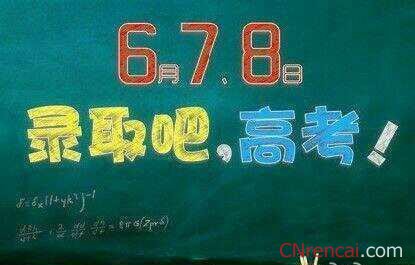 6月7、8日
录取吧，高考！
CNrencai.com